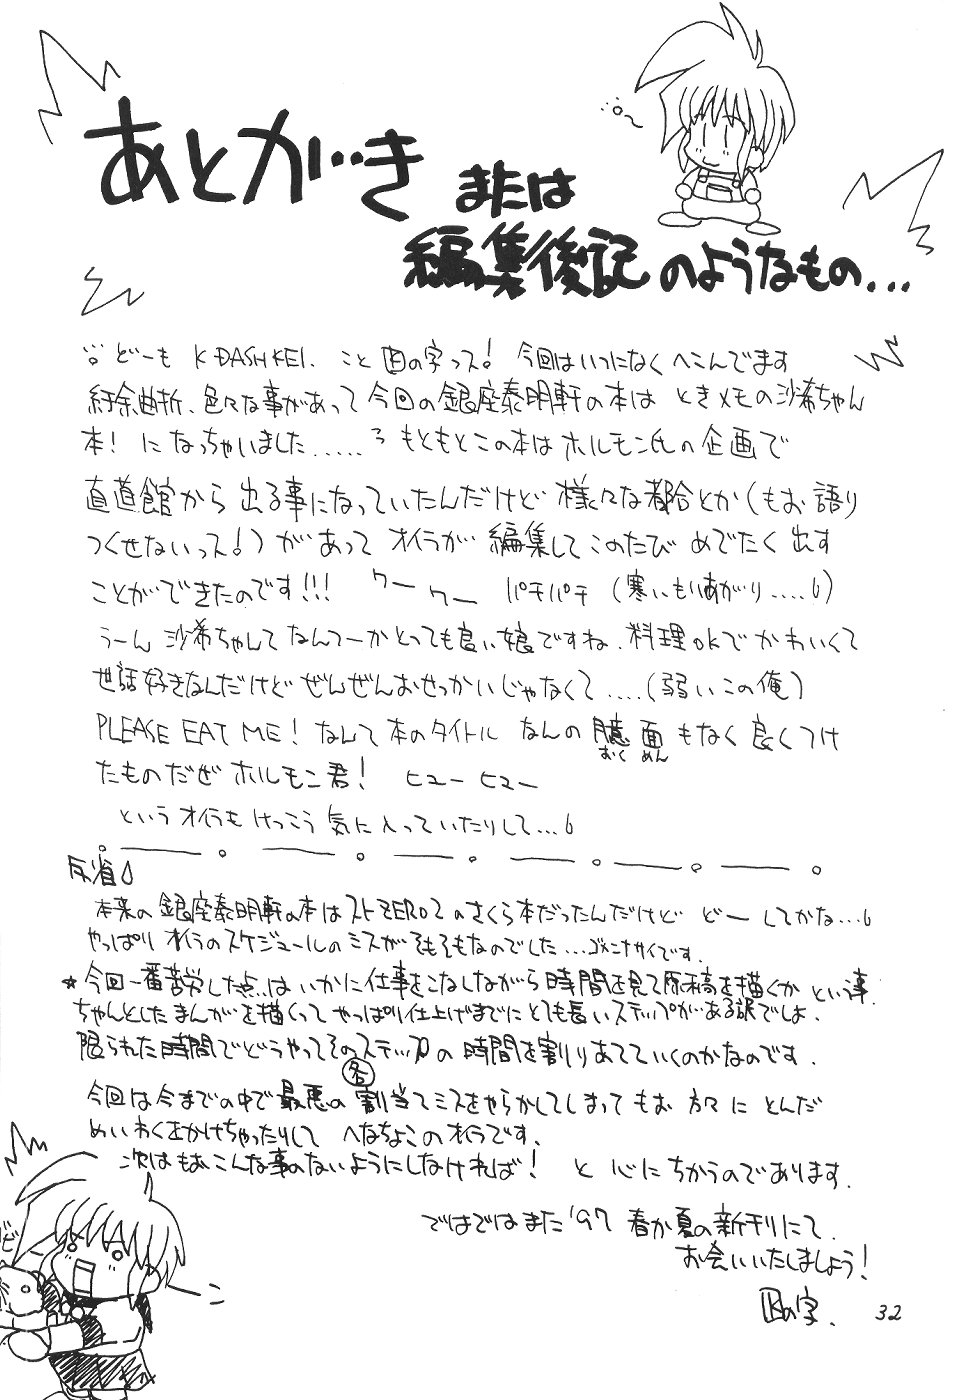 あとがき または
編集後記のようなもの...
どーも K-DASH KEI. こと 囚の字っス! 今回はいつになくへこんでます
紆余曲折、色々な事があって今回の銀座泰明軒の本は ときメモの沙希ちゃん
本! に なっちゃいました..... もともとこの本はホルモン氏の企画で
直道館から 出る事になっていたんだけど 様々な都合とか(もお語り
つくせないっス!) があって オイラが 編集して このたび めでたく 出す
ことができたのです!!! ワー ワー パチパチ (寒いもりあがり....)
うーん 沙希ちゃんて なんてーか とっても良い娘ですね. 料理okでかわいくて
世話好きなんだけど ぜんぜんおせっかいじゃなくて ....(弱いこの俺)
PLEASE EAT ME! なんて 本のタイトル なんの 臆面もなく 良くつけ
おくめん
たものだぜ ホルモン君! ヒューヒュー
という オイラも けっこう 気に入っていたりして...
反省
本来の 銀座泰明軒の本はストZERO2のさくら本だったんだけど どーしてかな...
やっぱり オイラのスケジュールのミスがそもそもなのでした...ゴメンナサイです.
★今回一番苦労した点..は いかに仕事をこなしながら 時間を見て原稿を描くか という事.
ちゃんとした まんがを描くって やっぱり仕上げまでに とても長いステップがある訳でしょ.
限られた時間でどうやってそのステップの 時間を割りあてていくのかなのです.
今回は今までの中で最悪の 各 割当てミスをやらかしてしまって もお 方々に とんだ
めいわくをかけちゃったりして へなちょこのオイラです.
次はもおこんな事のないようにしなければ! と 心にちかうのであります.
ではではまた'97 春か夏の新刊にて.
お会いいたしましょう!
囚の字.
32